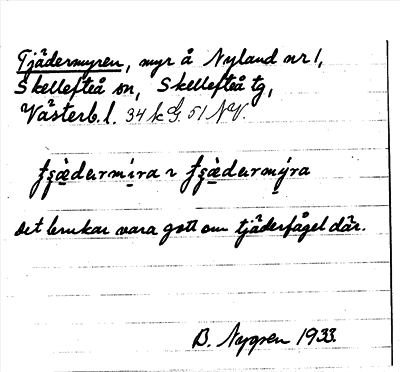 Tjädermyren, myr å Nyland nr 1,
Skellefteå sn, Skellefteå tg,
Västerb. l. 34 k G. 51 NV.
det brukar vara gott om tjäderfågel där.
B. Nygren 1933.